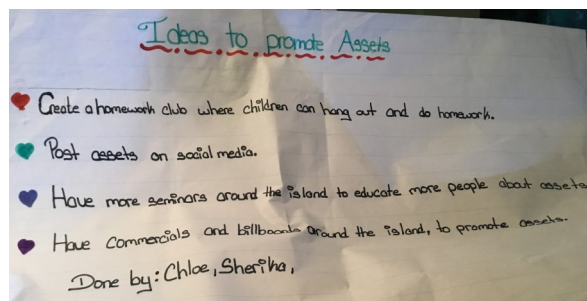 Ideas to promote Assets
Create a homework club where children can hang out and do homework.
Post assets on social media.
Have more seminars around the island to educate more people about assets
Have commercials and billboards around the island, to promote assets.
Done by: Chloe, Sherika,